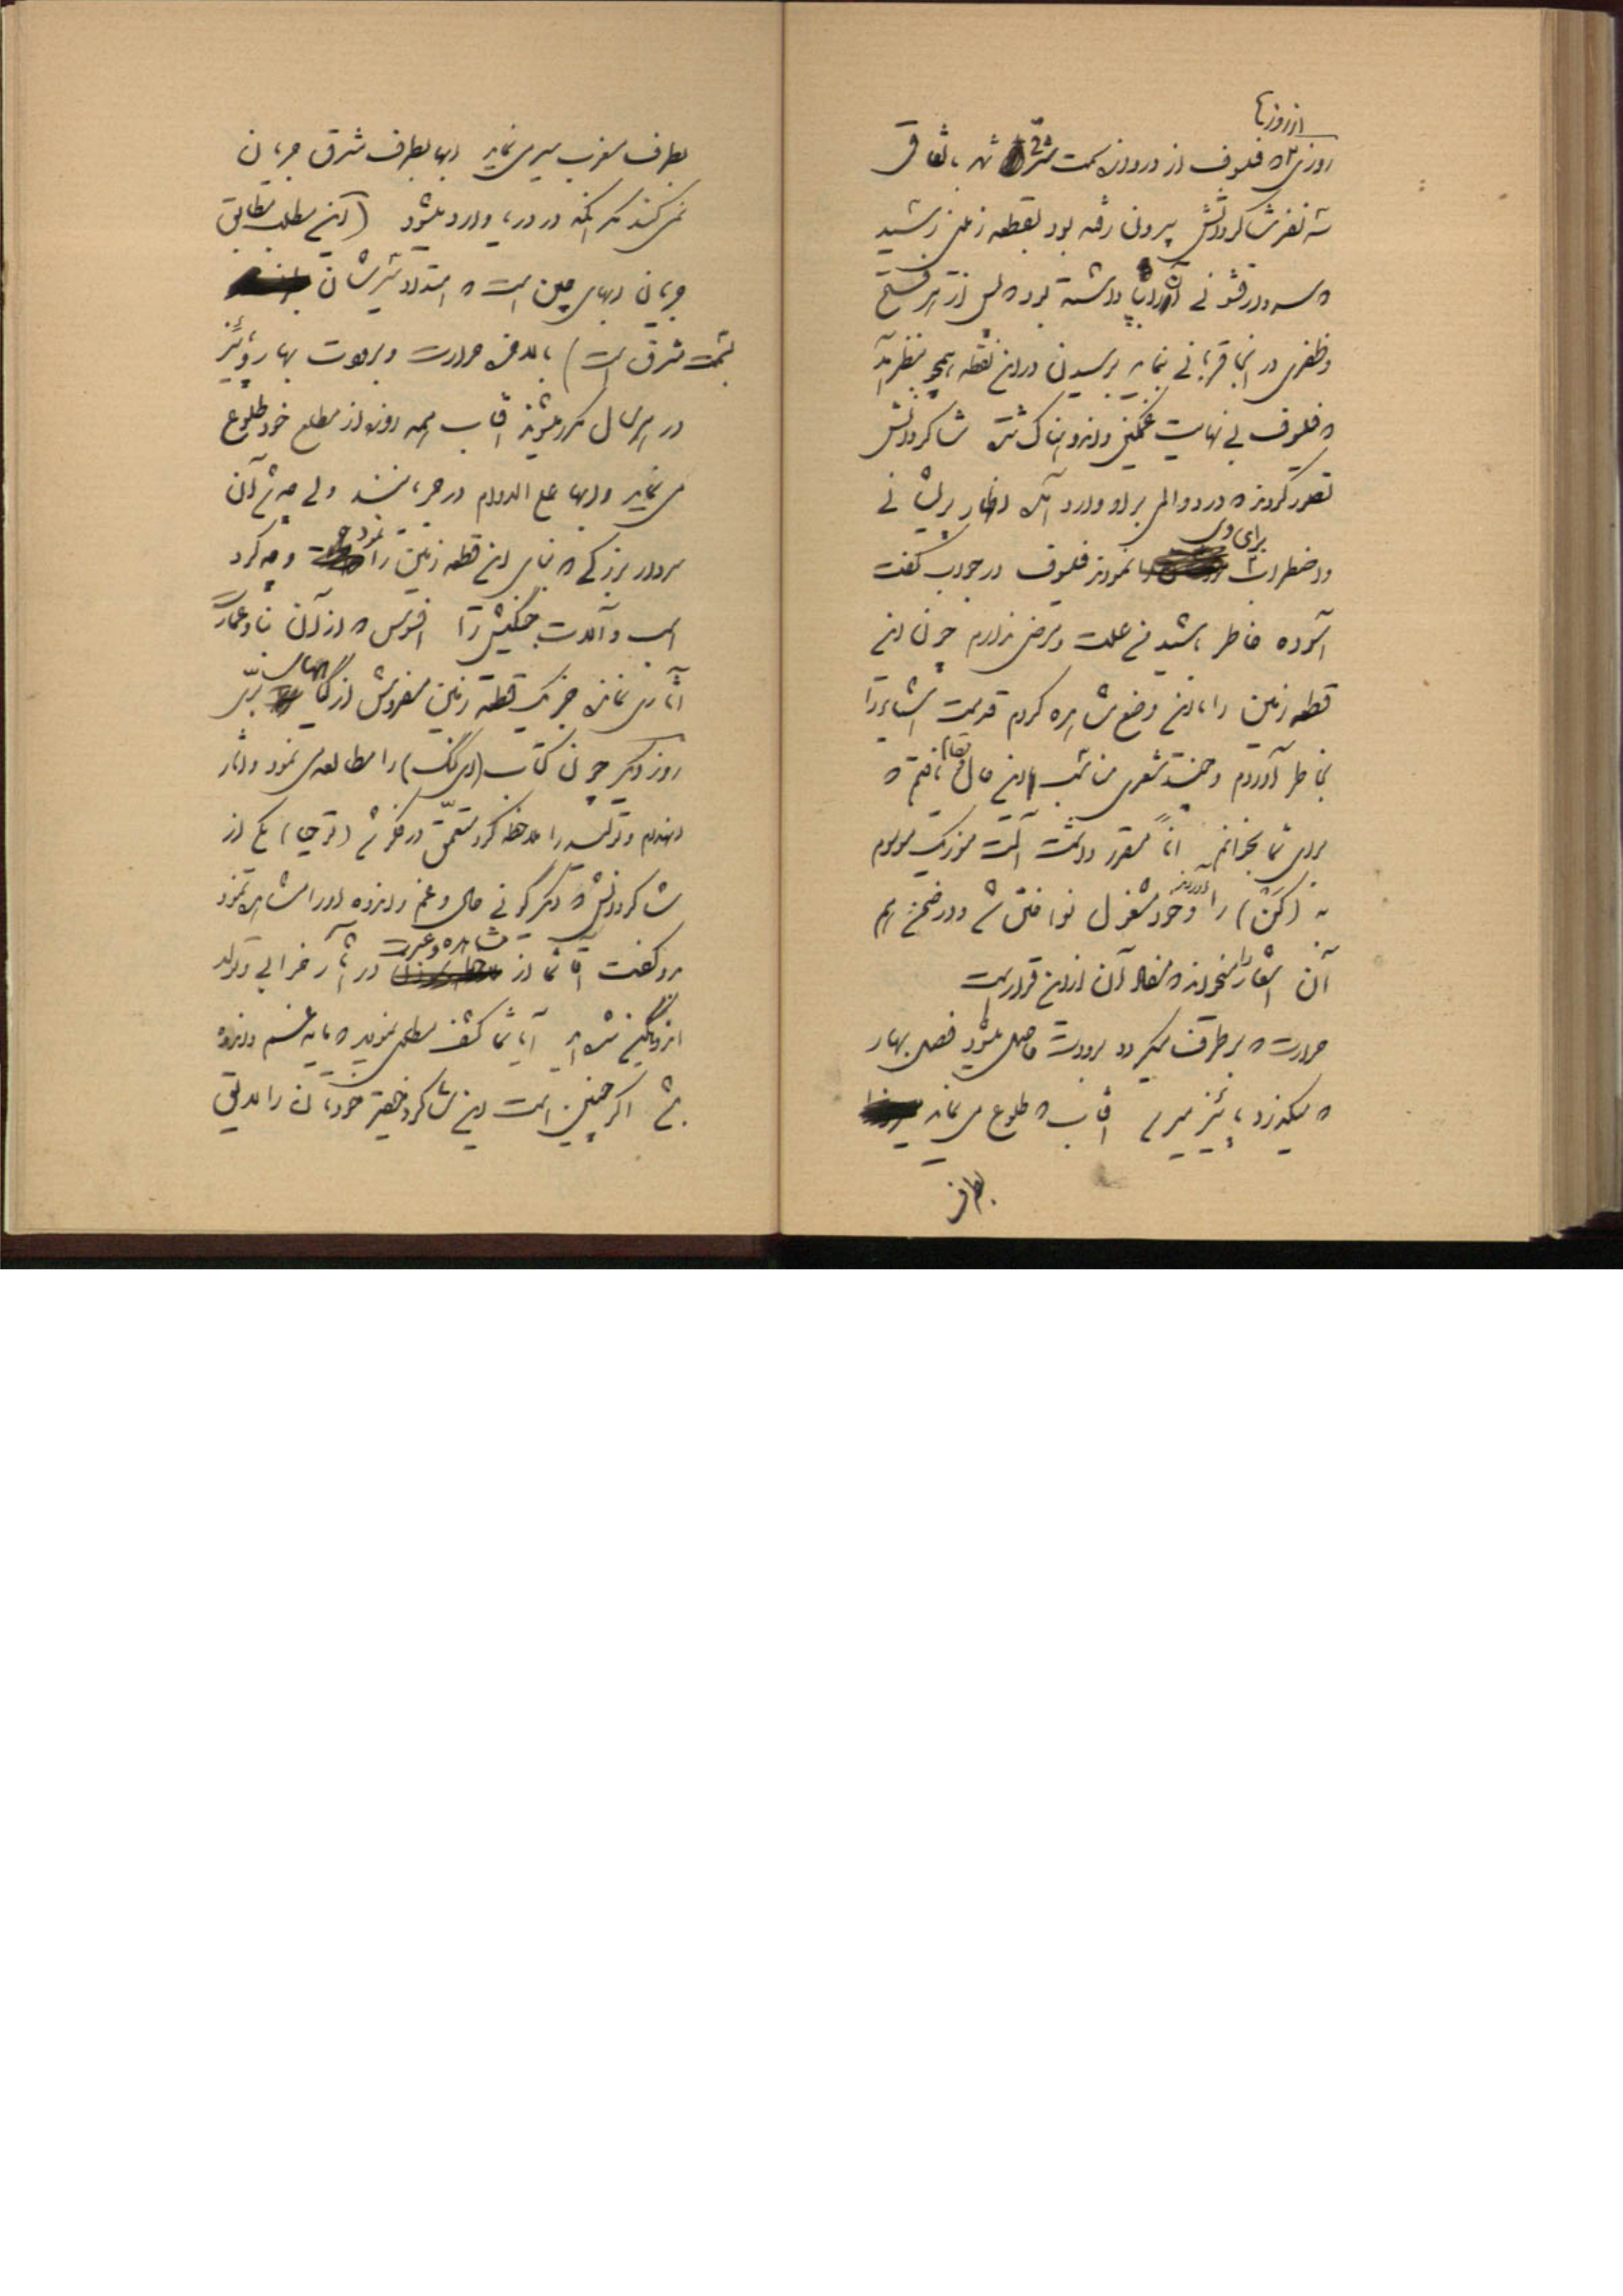 از روزها
روزی که فیلسوف از دروازه سمت شرقی شهر باتفاق
سه نفر شاگردانش بیرون رفته بود بقطعه زمینی رسید
که سردار قشونی آنرا بنا داشته بود که پس از هر فتح
و ظفری در آنجا قربانی نماید برسیدن در این نقطه بنظر آمد
که فیلسوف بی نهایت غمگین و اندوهناک شده شاگردانش
تصور کردند که درد و المی بر او وارد آمده اظهار پریشانی
و اضطراب برای وی نمودند فیلسوف در جواب گفت
آسوده خاطر باشید من علت و مرضی ندارم چون این
قطعه زمین را باین وضع مشاهده کردم قدیمت اشیاء را
بخاطر آوردم و چند شعری مناسب این حال و مقام یافتم که
برای شما بخوانم آناً مقرر داشت آلت موزیک موسوم
به (کن) را آوردند و خود مشغول نواختن شد و در ضمن هم
آن اشعار را میخواند که مفاد آن از این قرار است
حرارت که بر طرف میگردد برودت حاصل میشود فصل بهار
که میگذرد پائیز میرسد آفتاب که طلوع می نماید
بطرف
بطرف مغرب سیر می نماید آبها بطرف شرق جریان
نمی کنند مگر آنکه در دریا وارد بشود (این مطلب مطابق
جریان آبهای چین است که امتداد سیرشان
بسمت شرق است) باندک حرارت و برودت بهار و پائیز
در هر سال مکرر میشوند آفتاب همه روزه از مطلع خود طلوع
می نماید و آبها علی الدوام در جریانند ولی چه شد آن
سردار بزرگی که بنای این قطعه زمین را نمود و چه کرد
اسب و آلات جنگیش را افسوس که از آن بنا و عمارت
آثاری نمانده جز یک قطعه زمین مفروش از گیاههای برّی
روز دیگر چون کتاب (لی کنگ) را مطالعه می نمود و آثار
انهدام و تولید را ملاحظه کرد متعمّق در فکر شد (تزچیا) یکی از
شاگردانش که دیگرگونی حال و غم و اندوه او را مشاهده نمود
برو گفت آقا شما از مشاهده و عبرت در آثار خرابی و تولد
اندوهگین شده اید آیا شما کشف مطلبی نمودید که مایه غم و اندوه
شد اگر چنین است این شاگرد حقیر خودتان را مدلی